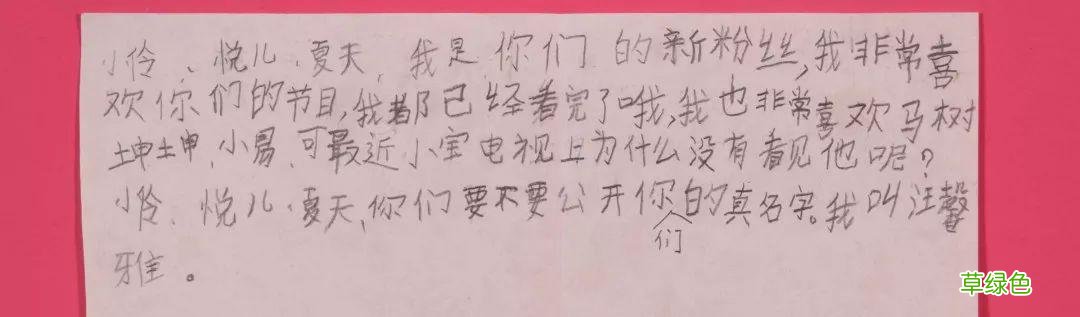 小伶、悦儿、夏天,我是你们的新粉丝,我非常喜
欢你们的节目,我都已经看完了哦,我也非常喜欢马树
坤坤,小易,可最近小宝电视上为什么没有看见他呢?
小伶、悦儿、夏天,你们要不要公开你们的真名字。我叫汪馨
雅。
草绿色